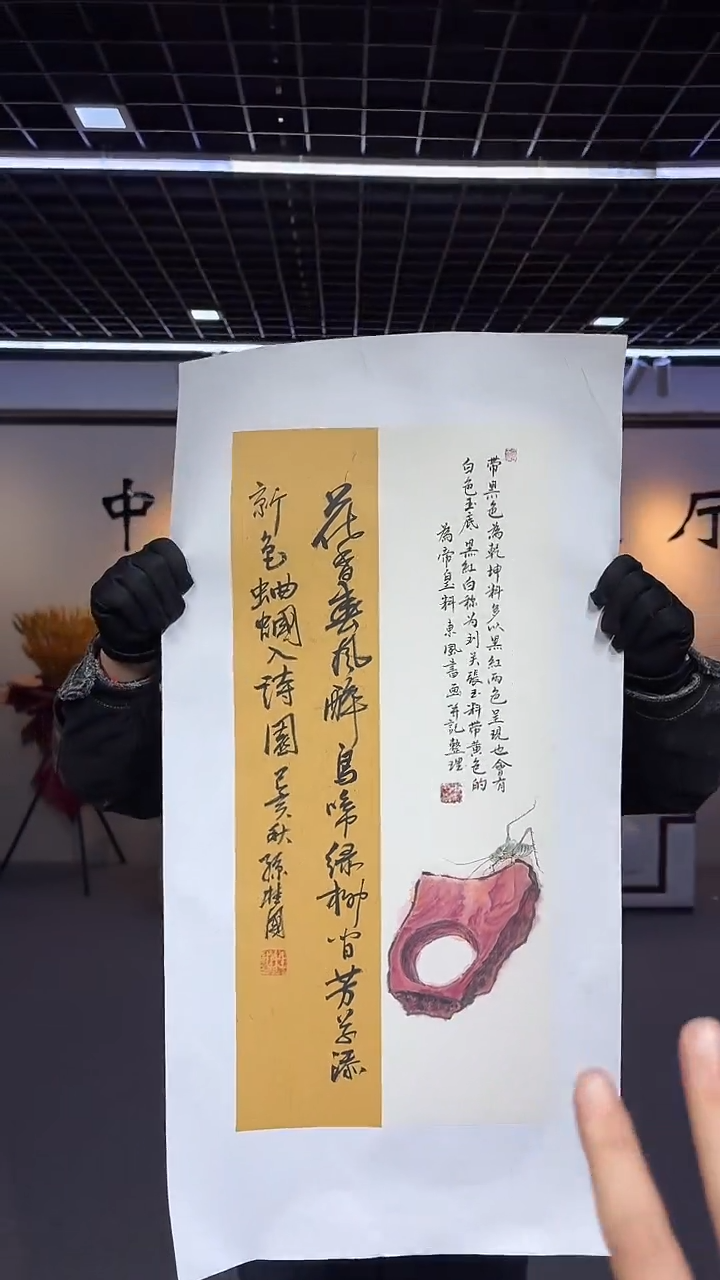 中
厅
帶黑色為乾坤料多以黑紅兩色呈現也會有
白色玉底黑紅白称为刘关張玉料带黄色的
為帝皇料 東風書画并記整理
花香春風醉鳥啼绿柳间芳草添
新色蛐蝈入诗園 己亥秋